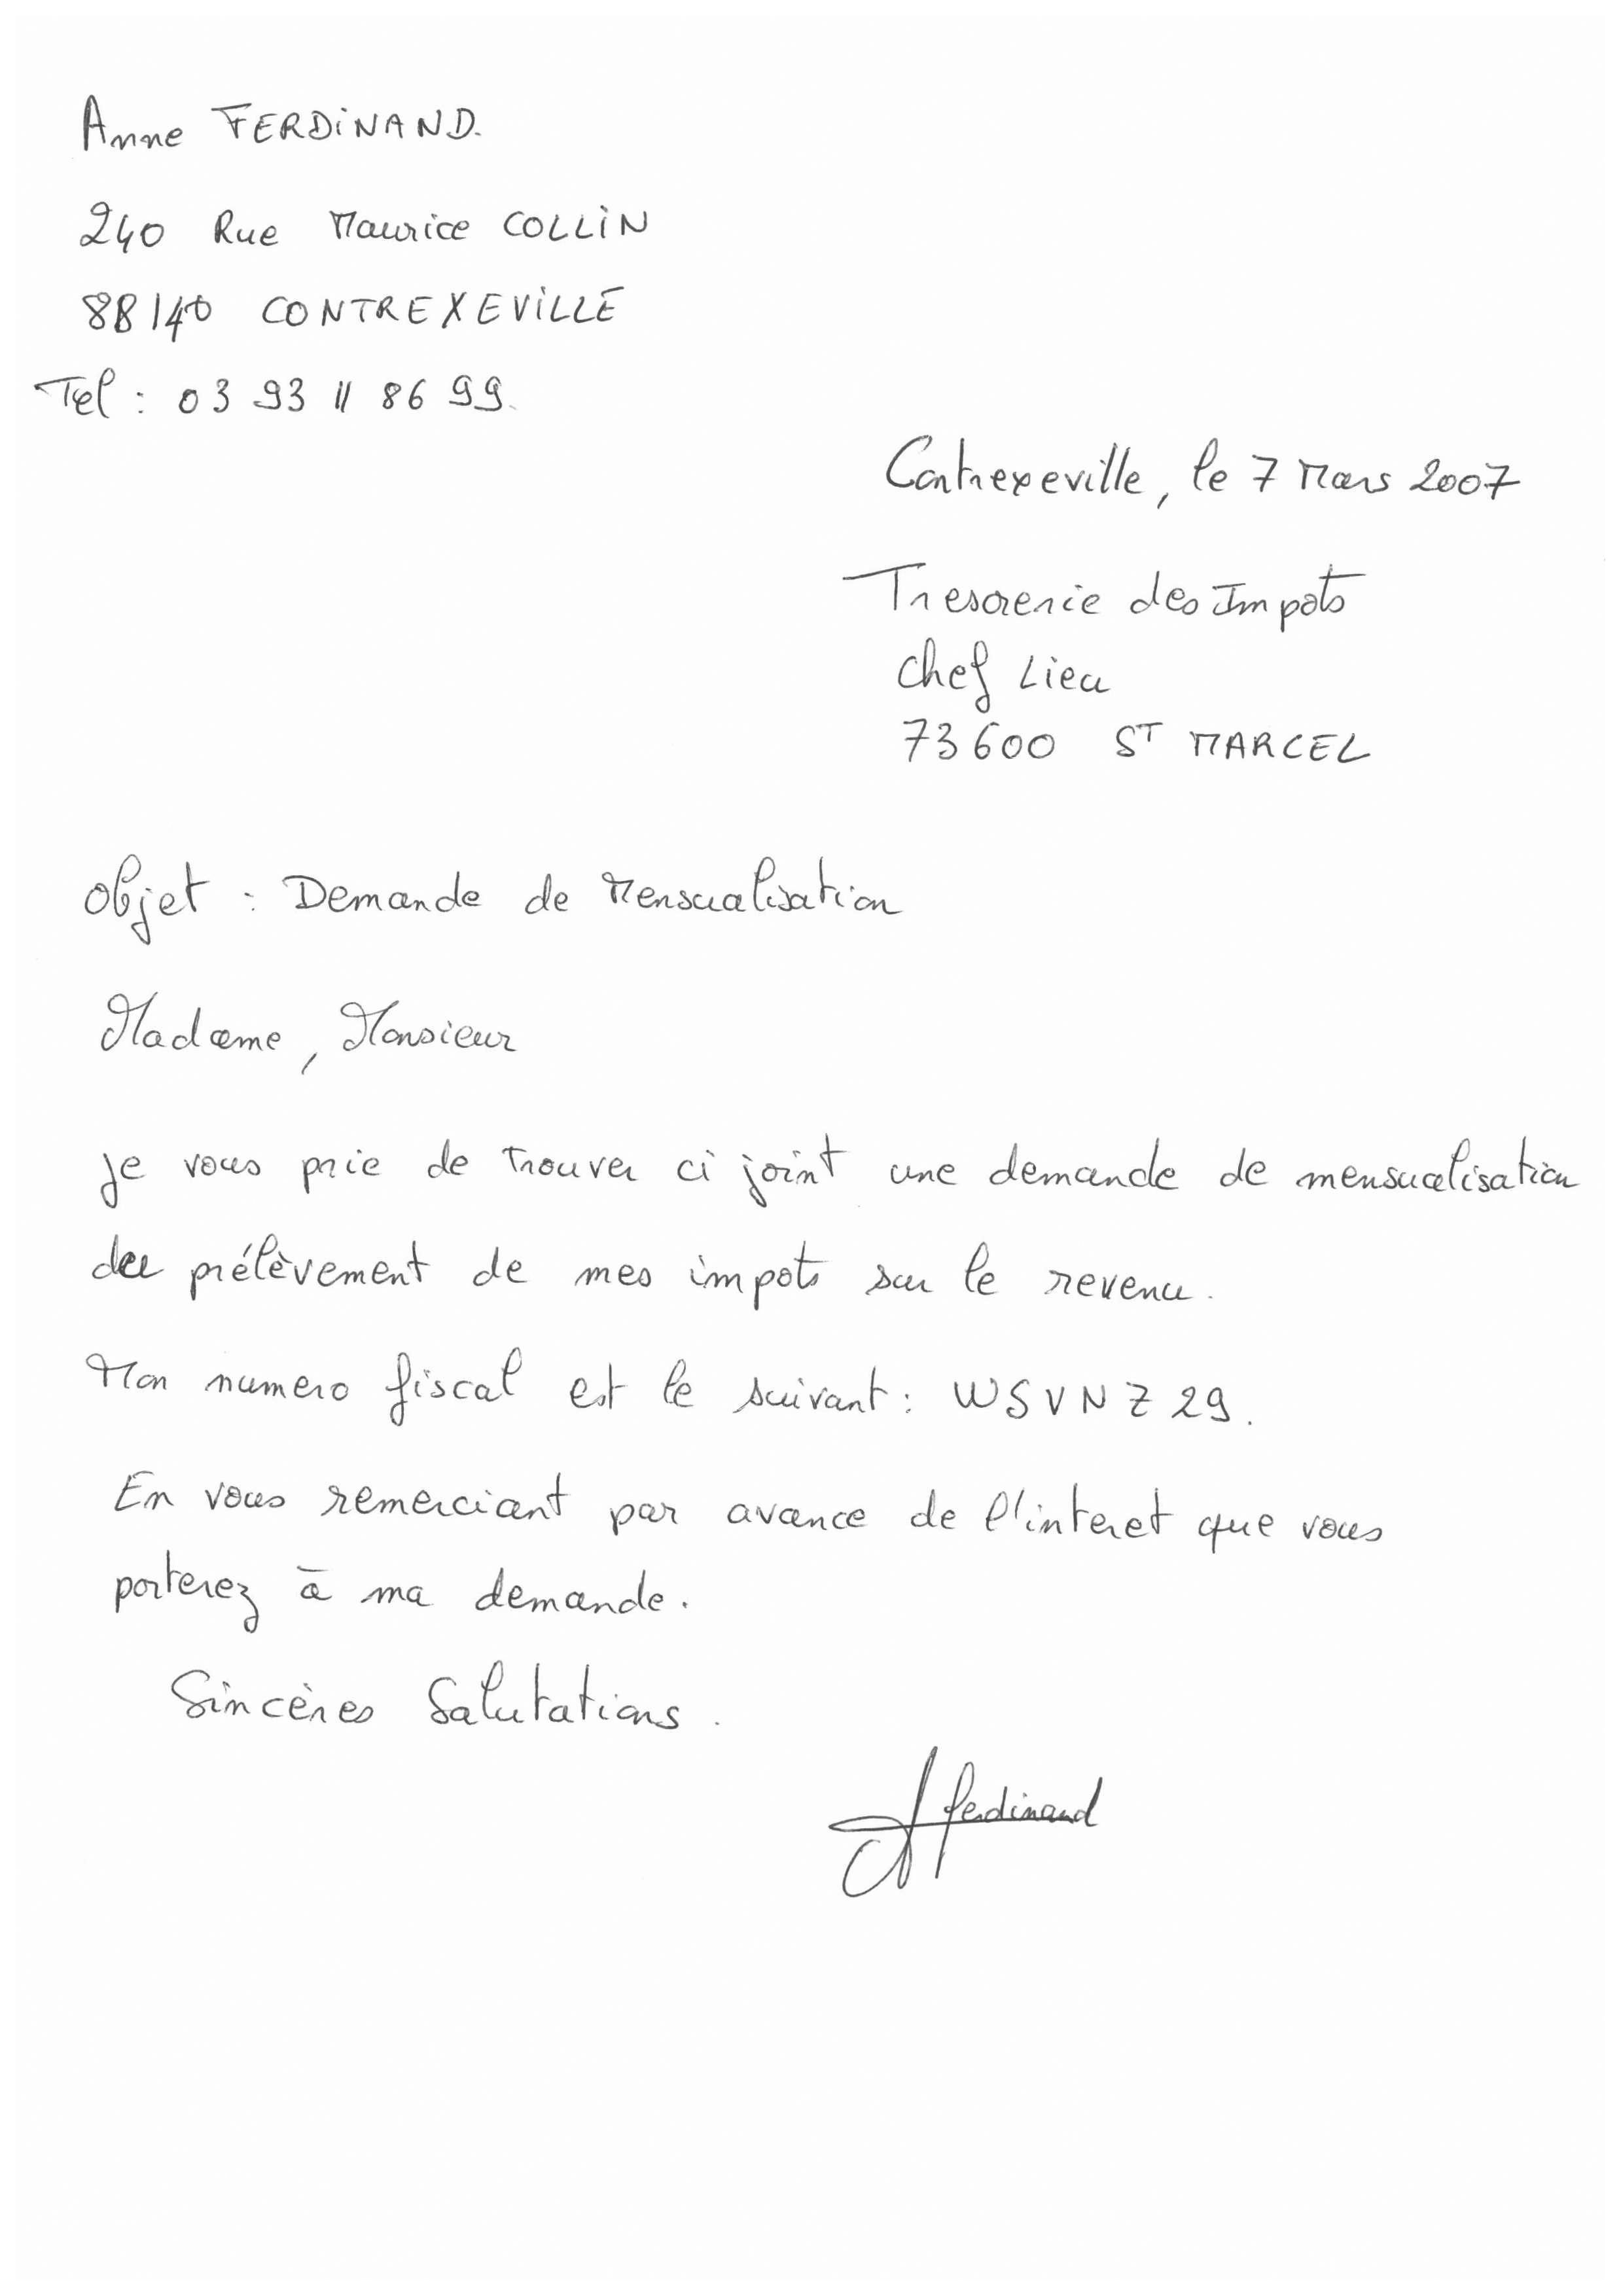 Anne FERDINAND.
240 Rue Maurice COLLIN
88140 CONTREXEVILLE
Tel : 03 93 11 86 99.
Contrexeville, le 7 Mars 2007
Tresorerie des Impots
Chef Lieu
73600 ST MARCEL
Objet : Demande de Mensualisation
Madame, Monsieur
Je vous prie de trouver ci joint une demande de mensualisation
du prélèvement de mes impots sur le revenu.
Mon numero fiscal est le suivant : WSVNZ29.
En vous remerciant par avance de l'interet que vous
porterez à ma demande.
Sincères Salutations.
A ferdinand